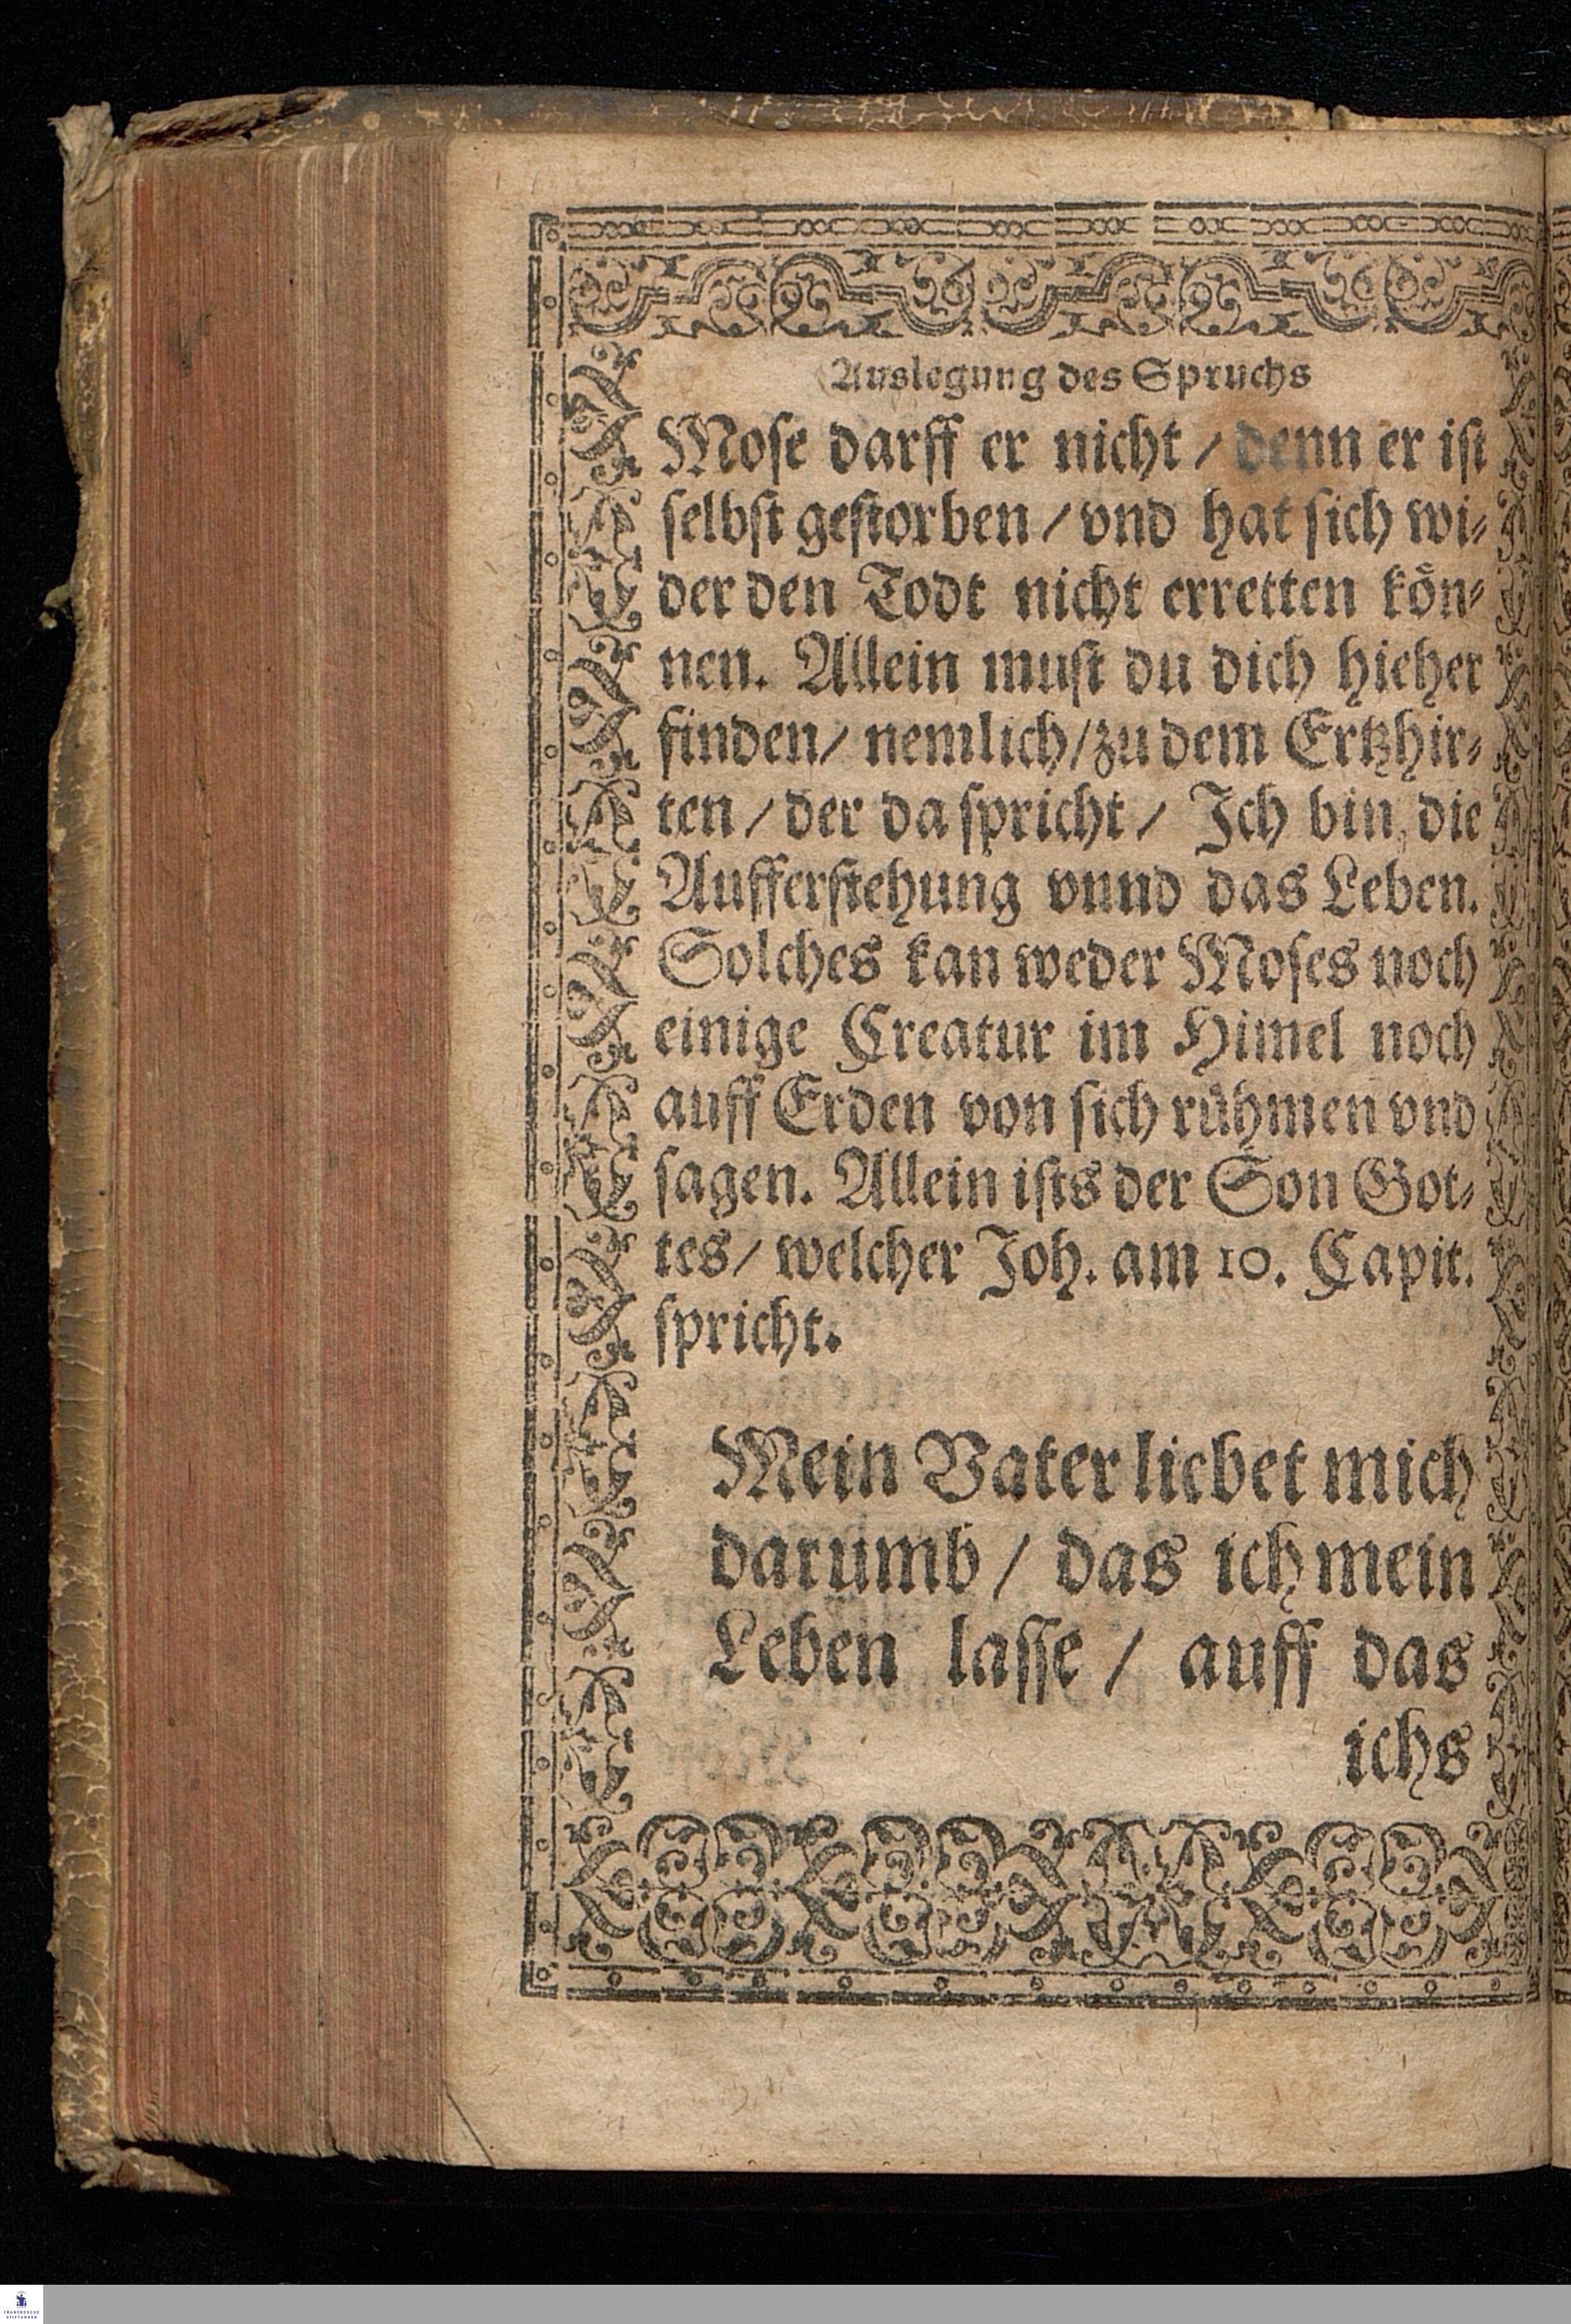 Auslegung des Spruchs
Mose darff er nicht / denn er ist
selbst gestorben / vnd hat sich wi⸗
der den Todt nicht erretten koͤn⸗
nen. Allein must du dich hieher
finden / nemlich / zu dem Ertzhir⸗
ten / der da spricht / Ich bin die
Aufferstehung vnnd das Leben.
Solches kan weder Moses noch
einige Creatur im Himel noch
auff Erden von sich ruͤhmen vnd
sagen. Allein ists der Son Got⸗
tes / welcher Joh. am 10. Capit.
spricht.
Mein Vater liebet mich
darumb / das ich mein
Leben lasse / auff das
ichs
FRANCKESCHE
STIFTUNGEN